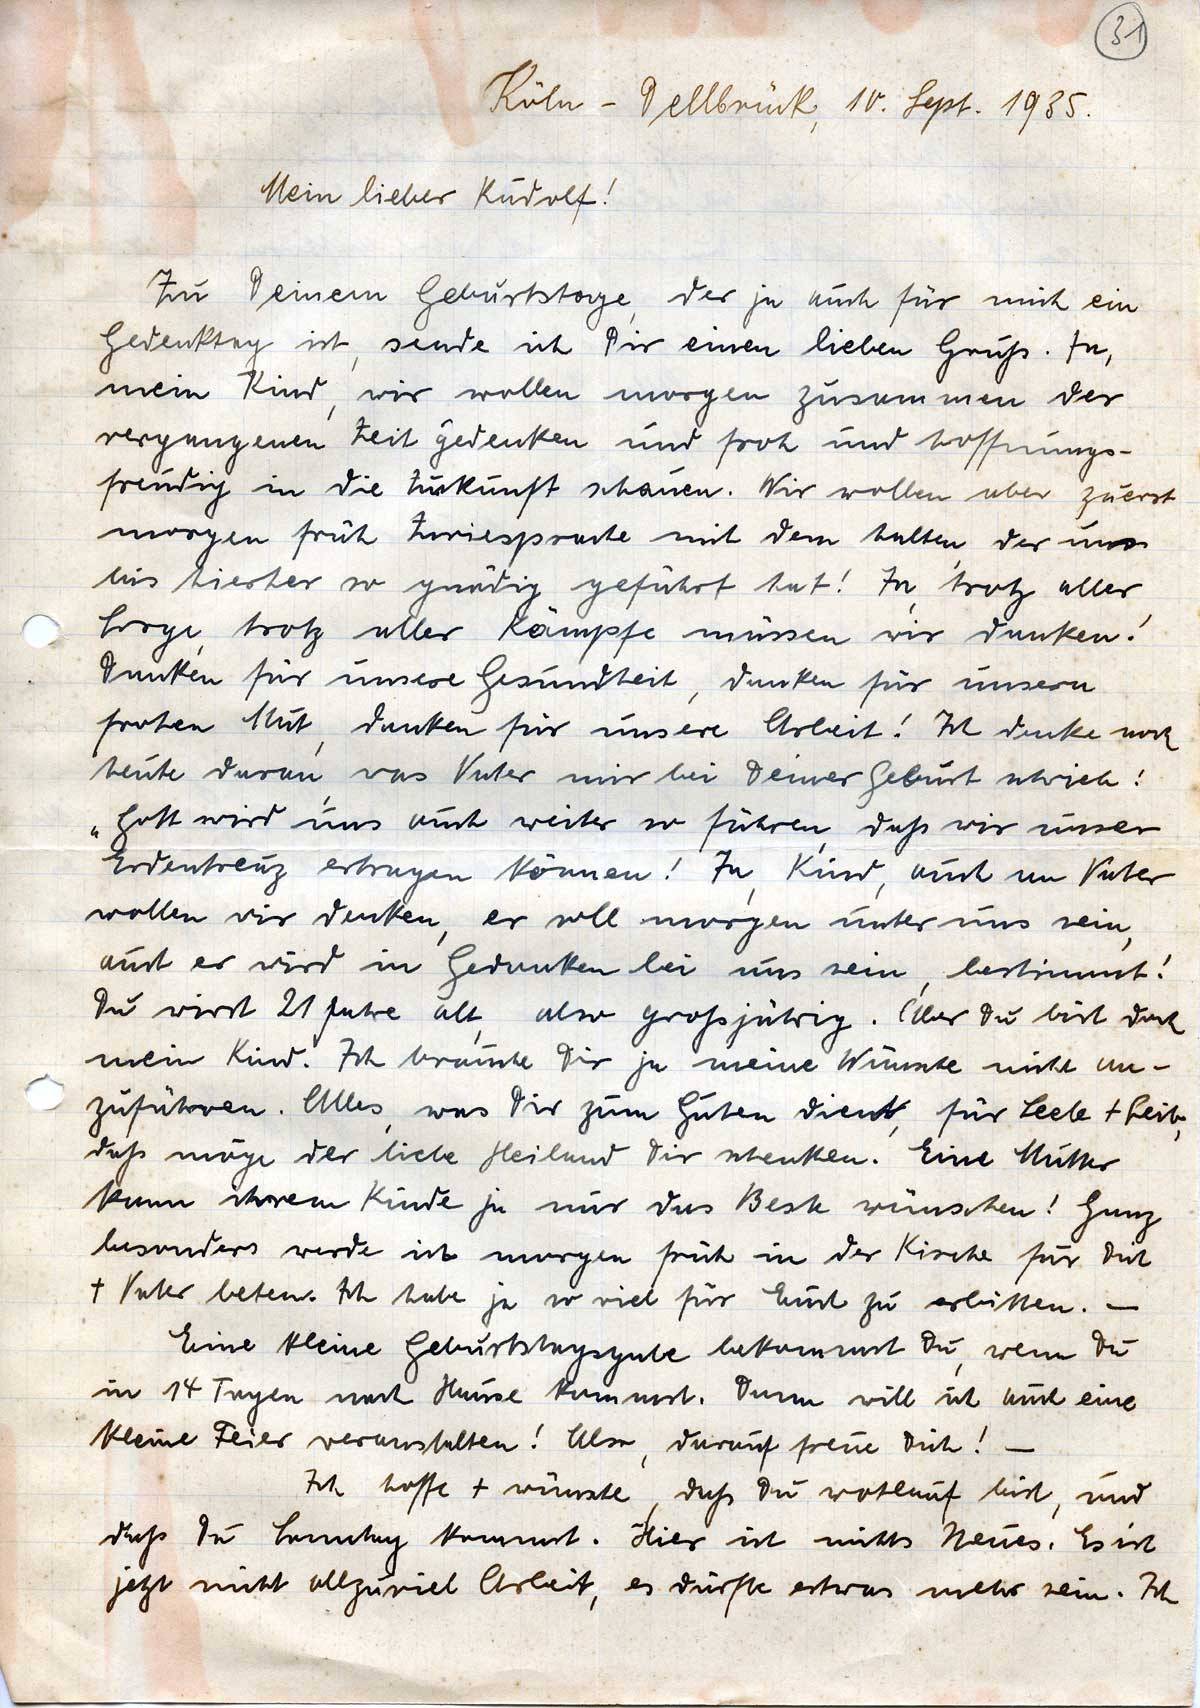 31
Köln - Dellbrück, 10. Sept. 1935.
Mein lieber Rudolf!
Zu Deinem Geburtstage, der ja auch für mich ein
Gedenktag ist, sende ich Dir einen lieben Gruß. Ja,
mein Kind, wir wollen morgen zusammen der
vergangenen Zeit gedenken und froh und hoffnungs-
freudig in die Zukunft schauen. Wir wollen aber zuerst
morgen früh Zwiesprache mit dem halten, der uns
bis hierher so gnädig geführt hat! Ja, trotz aller
Sorge, trotz aller Kämpfe müssen wir danken!
Danken für unsere Gesundheit, danken für unsern
frohen Mut, danken für unsere Arbeit! Ich denke noch
heute daran, was Vater mir bei Deiner Geburt schrieb!
„Gott wird uns auch weiter so führen, daß wir unser
Erdenkreuz ertragen können! Ja, Kind, auch an Vater
wollen wir denken, er soll morgen unter uns sein,
auch er wird in Gedanken bei uns sein, bestimmt!
Du wirst 21 Jahre alt, also großjährig. Aber Du bist doch
mein Kind. Ich brauche Dir ja meine Wünsche nicht an-
zuführen. Alles, was Dir zum Guten dient, für Seele + Leib,
daß möge der liebe Heiland Dir schenken. Eine Mutter
kann ihrem Kinde ja nur das Beste wünschen! Ganz
besonders werde ich morgen früh in der Kirche für Dich
+ Vater beten. Ich habe ja so viel für Euch zu erbitten. —
Eine kleine Geburtstagsgabe bekommst Du, wenn Du
in 14 Tagen nach Hause kommst. Dann will ich auch eine
kleine Feier veranstalten! Also, darauf freue Dich! —
Ich hoffe + wünsche, daß Du wohlauf bist, und
daß Du Sonntag kommst. Hier ist nichts Neues. Es ist
jetzt nicht allzuviel Arbeit, es dürfte etwas mehr sein. Ich